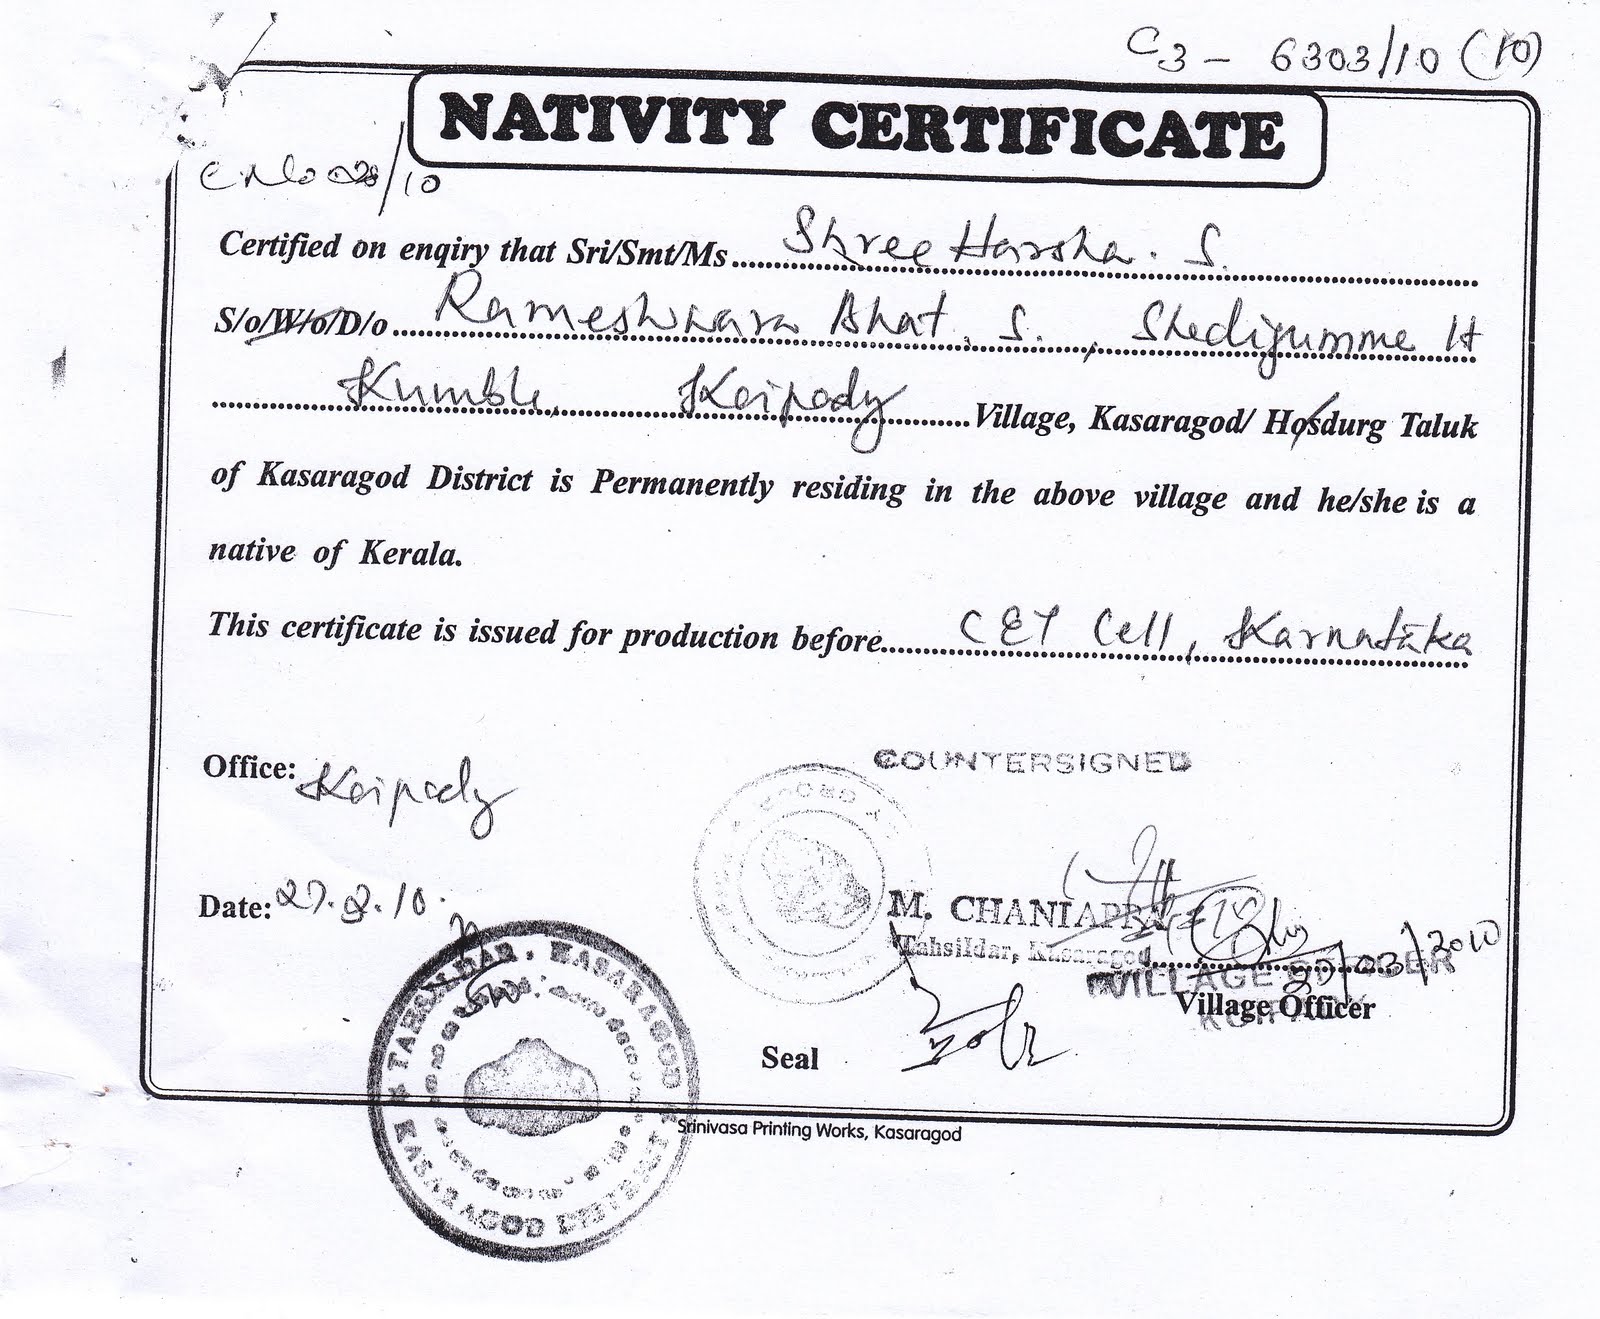 C3 - 6303/10 (10)
NATIVITY CERTIFICATE
/10
Certified on enqiry that Sri/Smt/Ms Shree Harsha. S.
S/o/W/o/D/o Rameshwara Bhat. S., Shedigumme H
Kumble, Koipady Village, Kasaragod/ Hosdurg Taluk
of Kasaragod District is Permanently residing in the above village and he/she is a
native of Kerala.
This certificate is issued for production before CET Cell, Karnataka
Office: Koipady
COUNTERSIGNED
Date: 27.3.10.
M. CHANIAPPA
Tahsildar, Kasaragod
27/03/2010
VILLAGE OFFICER
Village Officer
Seal
TAHSILDAR, KASARAGOD
Srinivasa Printing Works, Kasaragod